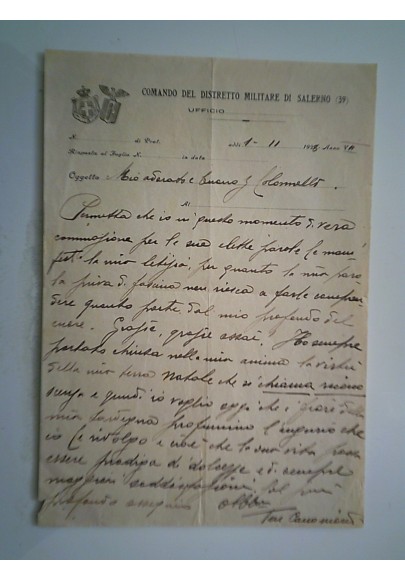 COMANDO DEL DISTRETTO MILITARE DI SALERNO (39)
UFFICIO
N. di Prot. addì 1-11 193 Anno
Risposta al foglio N. in data
Oggetto: Mio adorato e buono Colonnello.
Al
Permetta che io in questo momento di vera
commozione per le sue elette parole Le mani
festi la mia letizia, per quanto la mia paro
la priva di fascino non riesca a farle compren
dere quanto parte dal mio profondo del
cuore. Grazie, grazie assai, Ho sempre
portato chiusa nella mia anima la virtù
della mia terra Natale che si chiama ricono
scenza e quindi io voglio oggi che i fiori della
mia Sardegna profumino l'augurio che
io Le rivolgo e cioè che la sua vita possa
essere prodiga di dolcezze e di sempre
maggiori soddisfazioni. Col mio
profondo ossequio